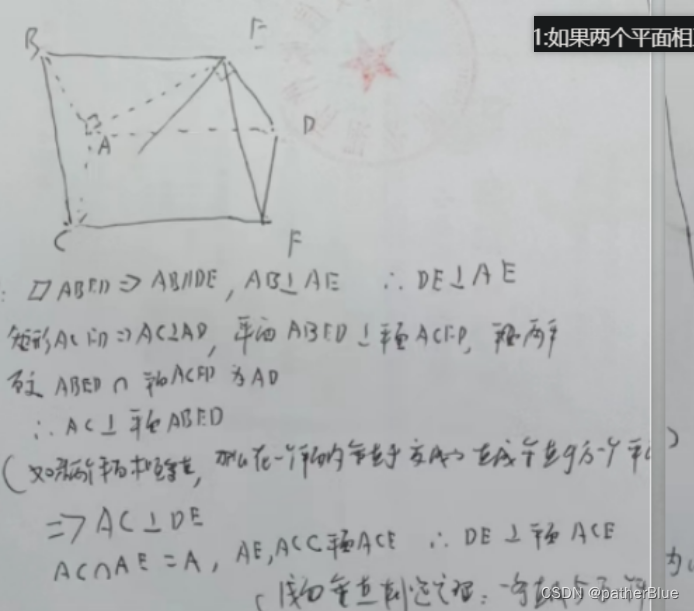 1:如果两个平面相
B
E
A
D
C
F
: ▱ABED => AB∥DE, AB⊥AE ∴ DE⊥AE
矩形ACFD => AC⊥AD, 平面ABED⊥平面ACFD, 平面
ABED ∩ 平面ACFD 为AD
∴ AC⊥平面ABED
(如果两个平面相互垂直, 那么在一个平面内垂直于交线的直线垂直另一个平面)
=> AC⊥DE
AC∩AE=A, AE,AC⊂平面ACE ∴ DE⊥平面ACE
(线面垂直判定定理: 一
CSDN @patherBlue